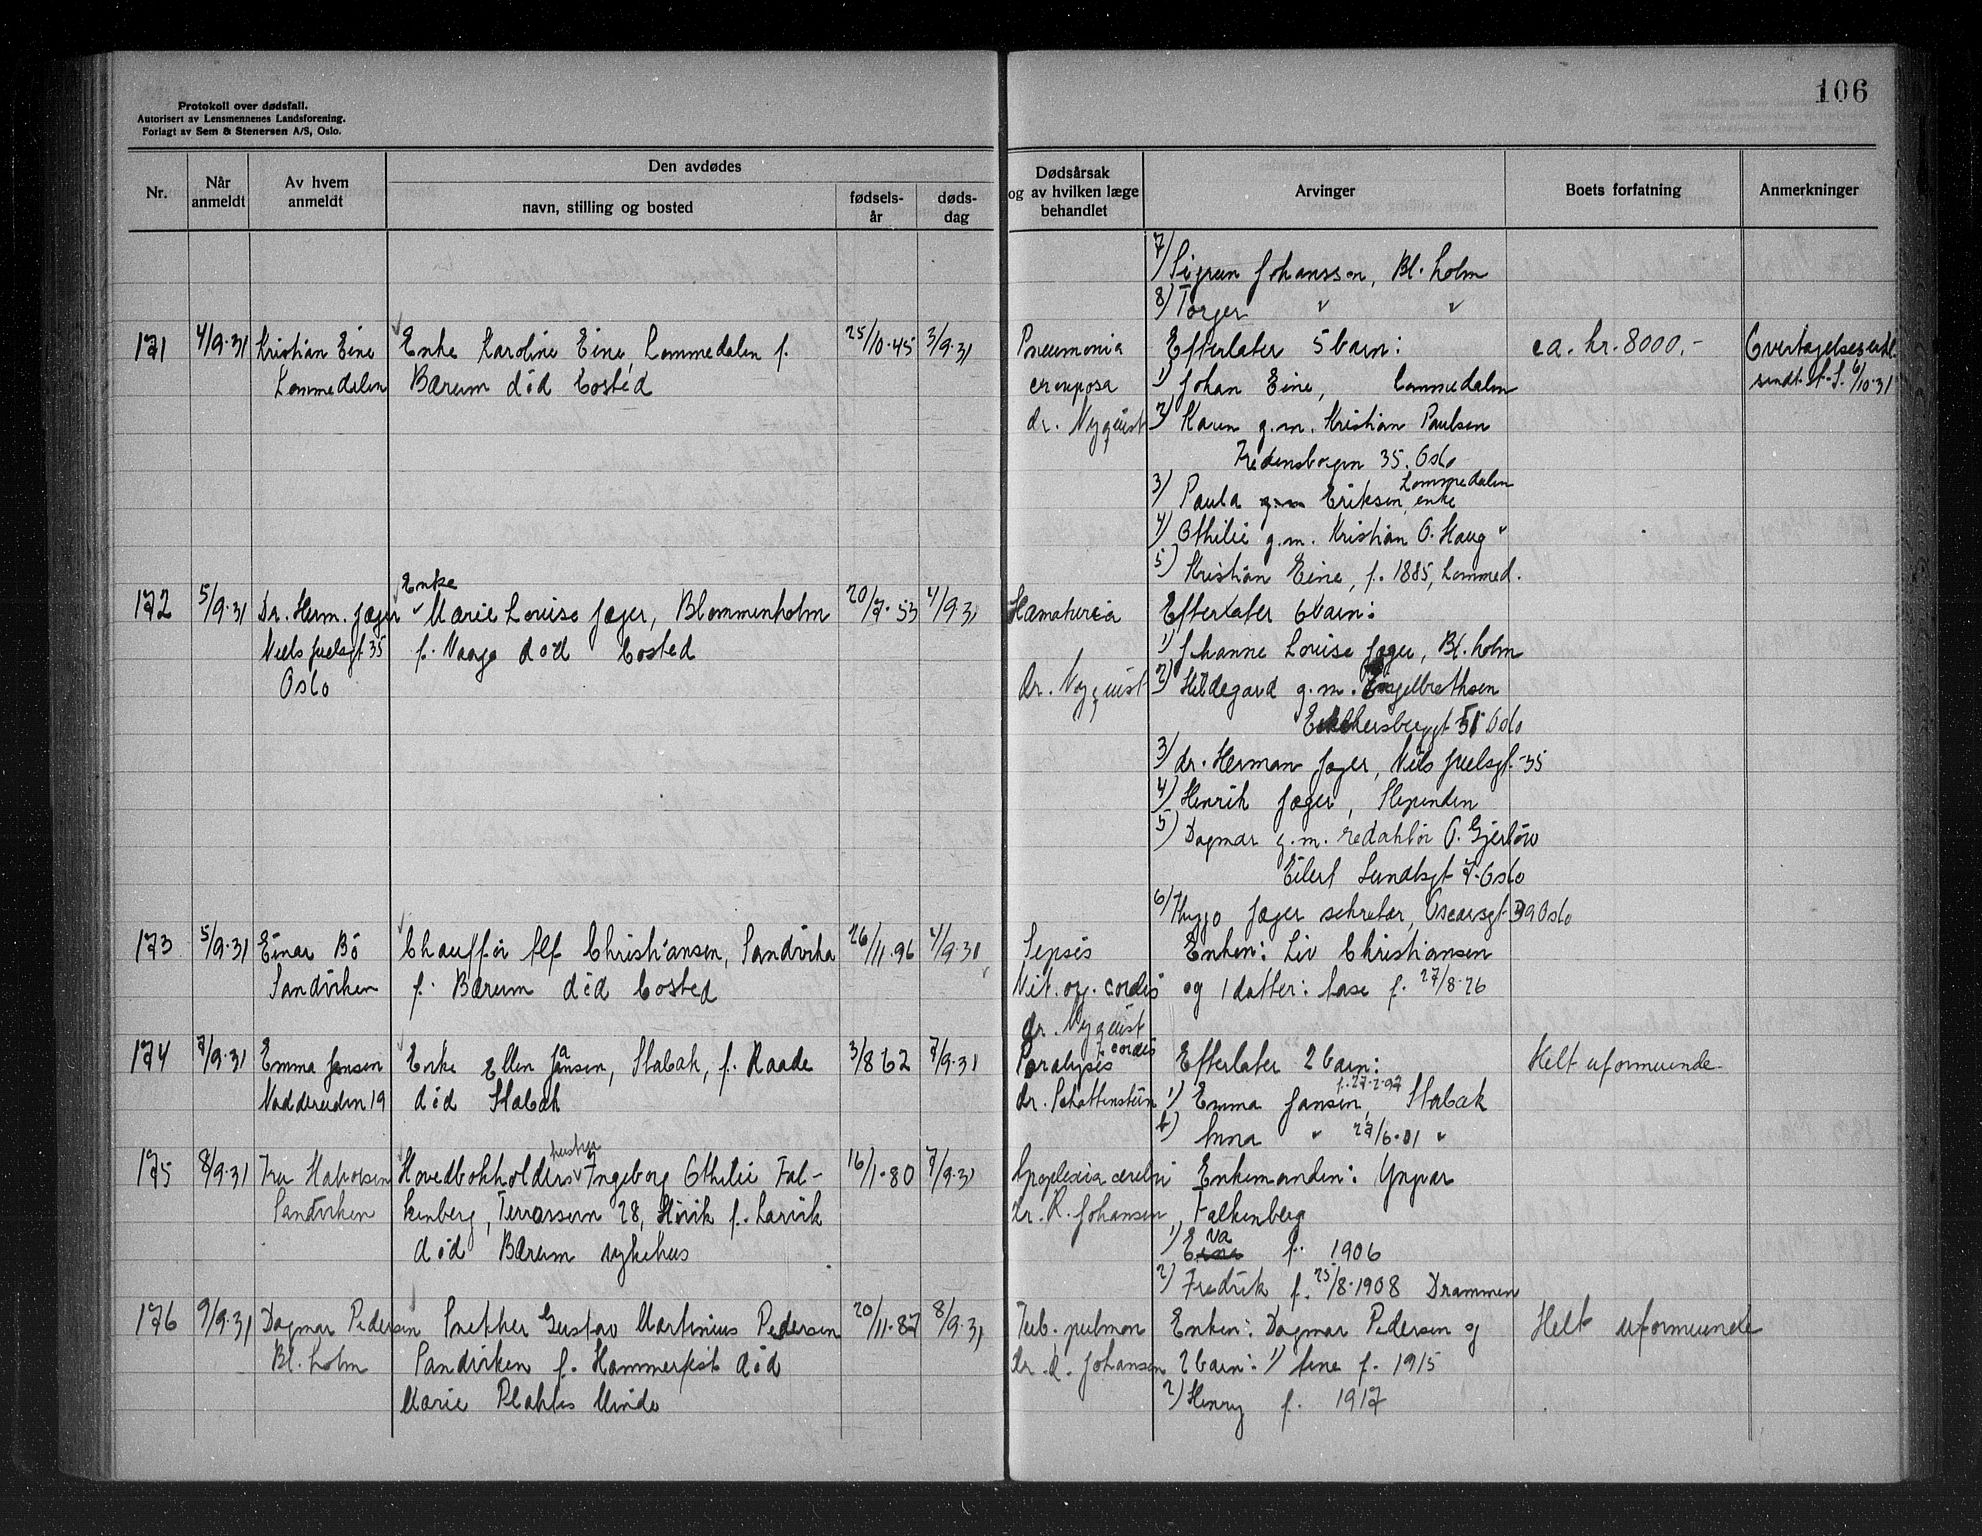 106
Protokoll over dødsfall.
Autorisert av Lensmennenes Landsforening.
Forlagt av Sem & Stenersen A/S, Oslo.
Nr.
Når anmeldt
Av hvem anmeldt
Den avdødes
navn, stilling og bosted
fødsels-år
døds-dag
Dødsårsak og av hvilken læge behandlet
Arvinger
Boets forfatning
Anmerkninger
7) Sigrun Johanssen, Bl. holm
8) Torger " "
171 4/9.31 Kristian Eine Enke Karoline Eine Lommedalen f. 25/10.45 3/9.31 Pneumonia Efterlater 5 barn: ca. kr. 8000.-
Lommedalen Bærum død bosted crouposa 1) Johan Eine, Lommedalen sendt. 6/10.31
dr. Nyquist 2) Karen g.m. Kristian Paulsen
35. Oslo
3) Paula g.m. Eriksen, enke Lommedalen
4) Othilie g.m. Kristian O. Haug "
5) Kristian Eine, f. 1885, Lommed.
Enke
172 5/9.31 Dr. Herm. Jæger Marie Louise Jæger, Blommenholm 20/7.53 4/9.31 Hæmaturia Efterlater 6 barn:
Niels Juelsgt 35 f. Vaage død bosted 1) Johanne Louise Jæger, Bl. holm
Oslo dr. Nyquist 2) Hildegard g.m. Engelbrethsen
51 Oslo
3) dr. Herman Jæger, Niels Juelsgt. 35
4) Henrik Jæger, Slependen
5) Dagmar g.m. redaktør O. Gjerløw
Eilert Sundtsgt 7. Oslo
6) Jæger sekretær, Oscarsgt 39 Oslo
173 5/9.31 Einar Bö Chauffør Alf Christiansen, Sandvika 26/11.96 4/9.31 Sepsis Enken: Liv Christiansen
Sandviken f. Bærum død bosted Vit. org. cordis og 1 datter: Aase f. 27/8.26
dr. Nyquist
174 7/9.31 Emma Jansen Enke Ellen Jansen, Stabæk, f. Raade 3/8 62 7/9.31 Paralysis cordis Efterlater 2 barn: Helt uformuende.
Nadderudvn 19 død Stabæk dr. Schattenstein 1) Emma Jansen, f. 27.2.92 Stabæk
2) Anna " 27/6.01 "
hustru
175 8/9.31 Fru Halvorsen Hovedbokholders Ingeborg Othilie Fal- 16/1.80 7/9.31 Apoplexia cerebri Enkemanden: Yngvar
Sandviken kenberg, Terrassevn 28, Høvik f. Larvik dr. R. Johansen Falkenberg
død Bærum sykehus 1) Eva f. 1906
2) Fredrik f. 25/8.1908 Drammen
176 9/9.31 Dagmar Pedersen Snekker Gustav Martinius Pedersen 20/11.87 8/9.31 Tub. pulmon Enken: Dagmar Pedersen og Helt uformuende
Bl. holm Sandviken f. Hammerfest død dr. R. Johansen 2 barn: 1) Arne f. 1915
Marie Plahtes Minde 2) Henry f. 1917